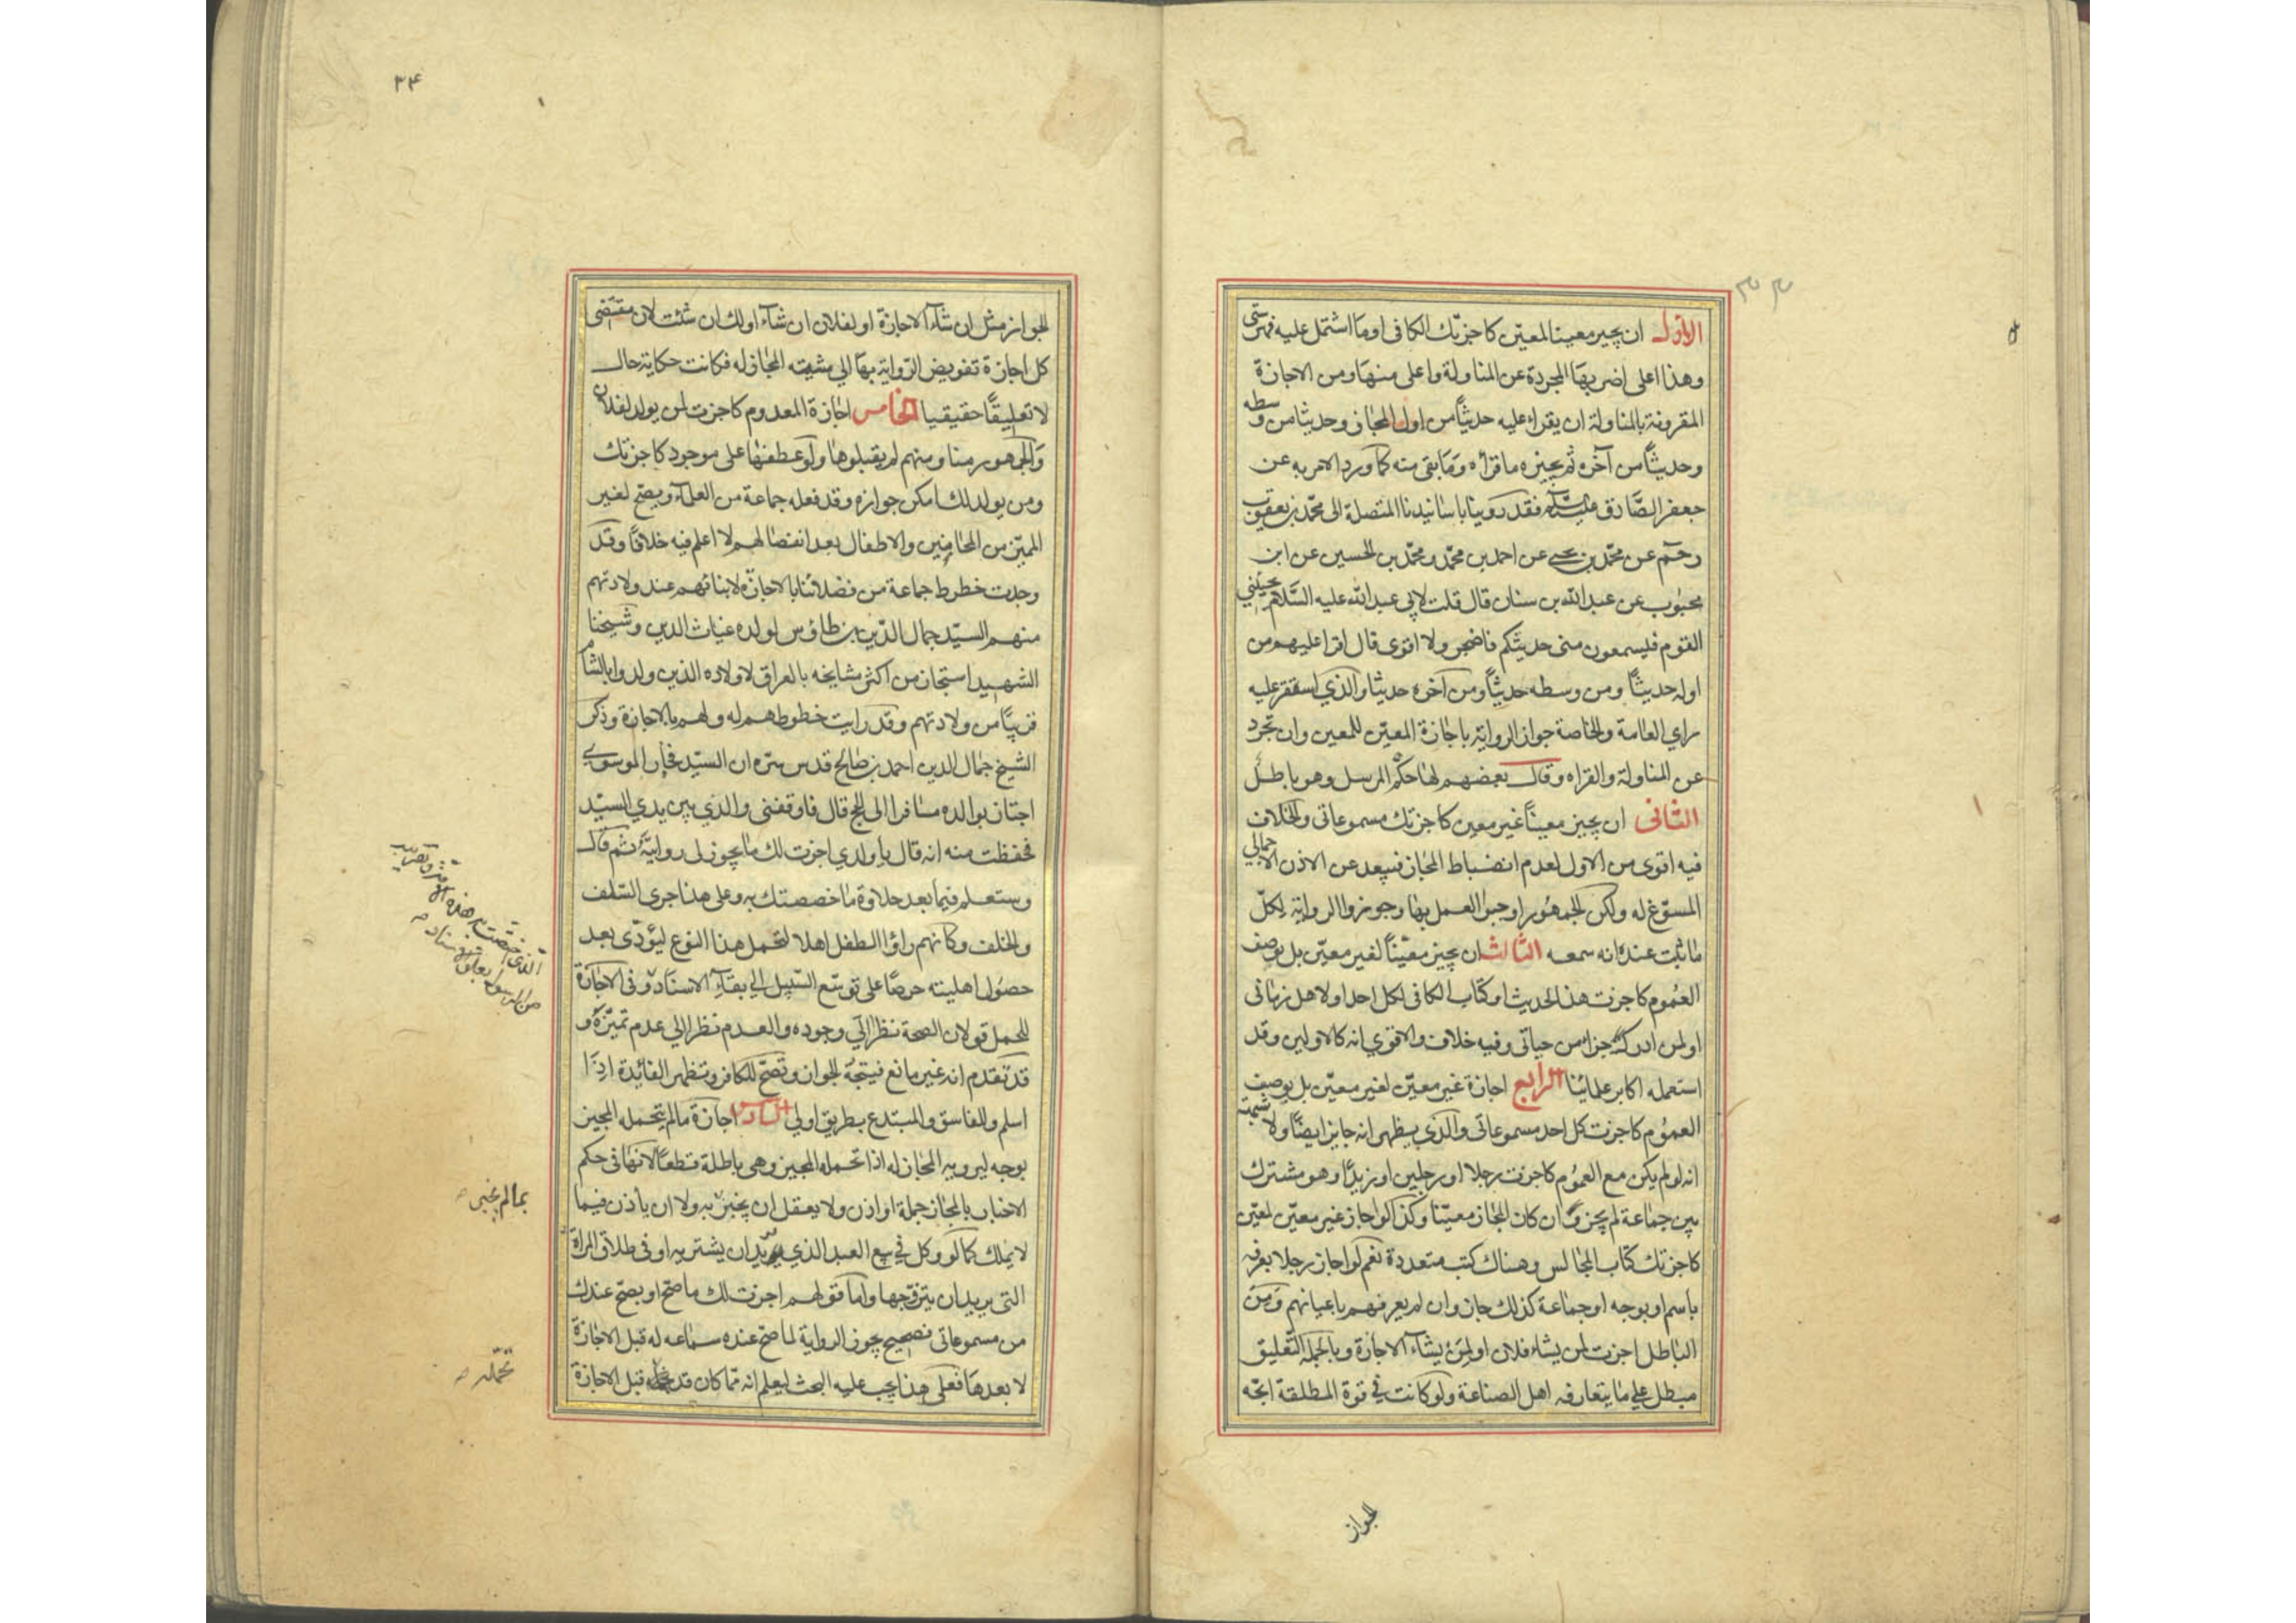 الاول ان يجيز معينا لمعيّن كاجزتك الكافى او ما اشتمل عليه فهرستى
وهذا اعلى اضربها المجردة عن المناولة واعلى منها ومن الاجازة
المقرونة بالمناولة ان يقراء عليه حديثاً من اول المجاز وحديثا من وسطه
وحديثاً من آخره ثم يجيزه ما قرأه وما بقى منه كما ورد الامر به عن
جعفر الصّادق عليه السّلام فقد روينا باسانيدنا المتصلة الى محمّد بن يعقوب
رحمه عن محمّد بن يحيى عن احمد بن محمّد ومحمّد بن الحسين عن ابن
محبوب عن عبد الله بن سنان قال قلت لابي عبد الله عليه السّلام يجيئنى
القوم فليسمعون منى حديثكم فاضجر ولا اقوى قال اقرا عليهم من
اوله حديثاً ومن وسطه حديثاً ومن آخره حديثا والذي استقر عليه
راي العامة والخاصة جواز الرواية باجازة المعيّن للمعين وان تجرد
عن المناولة والقراه وقال بعضهم لها حكم المرسل وهو باطل
الثانى ان يجيز معيناً غير معين كاجزتك مسموعاتى والخلاف
فيه اقوى من الاول لعدم انضباط المجاز فيبعد عن الاذن الاجمالي
المسوّغ له ولكن الجمهور اوجبوا العمل بها وجوزوا الرواية لكلّ
ما ثبت عنده انه سمعه الثالث ان يجيز معيّناً لغير معيّن بل بوصف
العموم كاجزت هذا الحديث او كتاب الكافى لكل احد او لاهل زمانى
او لمن ادرك جزاء من حياتى وفيه خلاف والاقوي انه كالاولين وقد
استعمله اكابر علمائنا الرابع اجازة غير معيّن لغير معيّن بل بوصف
العموم كاجزت كل احد مسموعاتى والذي يظهر انه جايز ايضًا ولا شبهة
انه لو لم يكن مع العموم كاجزت رجلا او رجلين او زيدًا وهو مشترك
بين جماعة لم يجز وان كان المجاز معيّنا وكذا لو اجاز غير معيّن لمعيّن
كاجزتك كتاب المجالس وهناك كتب متعددة نعم لو اجاز رجلا يعرفه
باسم او بوجه او جماعة كذلك جاز وان لم يعرفهم باعيانهم ومن
الباطل اجزت لمن يشاء فلان او لمن يشآء الاجازة وبالجملة التعليق
مبطل علي ما يتعارفه اهل الصناعة ولو كانت في قوة المطلقة اتجه
الجواز
۳۴
الجواز مثل ان شآء الاجازة او لفلان ان شآء او لك ان شئت لان مقتضى
كل اجازة تفويض الرّواية بها الي مشية المجاز له فكانت حكاية حال
لا تعليقًا حقيقيا الخامس اجازة المعدوم كاجزت لمن يولد لفلان
والجمهور منا ومنهم لم يقبلوها ولو عطفها على موجود كاجزتك
ومن يولد لك امكن جوازه وقد فعله جماعة من العلمآء ويصح لغير
المميّز من المجانين والاطفال بعد انفصالهم لا اعلم فيه خلافاً وقد
وجدت خطوط جماعة من فضلائنا بالاجازة لابنائهم عند ولادتهم
منهم السيّد جمال الدّين بن طاؤس لولده غياث الدين وشيخنا
الشهيد استجاز من اكثر مشايخه بالعراق لاولاده الذين ولدوا بالشام
قريبًا من ولادتهم وقد رايت خطوطهم له ولهم بالاجازة وذكر
الشيخ جمال الدين احمد بن صالح قدس سره ان السيّد فخار الموسوي
اجتاز بوالده مسافرا الى الحج قال فاوقفنى والدي بين يدي السيّد
فحفظت منه انه قال يا ولدي اجزت لك ما يجوز لى روايته ثم قال
وستعلم فيما بعد حلاوة ما خصصتك به وعلى هذا جرى السّلف
والخلف وكانهم راؤا الطفل اهلا لتحمل هذا النوع ليؤدّى بعد
حصول اهليته حرصًا على توسّع السّبيل الي بقآء الاسناد وفى الاجازة
للحمل قولان الصحة نظرا الي وجوده والعدم نظرا الي عدم تميّزه و
قد تقدم انه غير مانع فيتجه الجواز وتصحّ للكافر وتظهر الفائدة اذا
اسلم وللفاسق والمبتدع بطريق اولي السادس اجازة ما لم يتحمله المجيز
بوجه ليرويه المجاز له اذا تحمله المجيز وهى باطلة قطعاً لانها فى حكم
الاخبار بالمجاز جملة او اذن ولا يعقل ان يخبر به ولا ان ياذن فيما
لا يملك كما لو وكل في بيع العبد الذي يريد ان يشتريه او فى طلاق المراة
التى يريد ان يتزوجها واما قولهم اجزت لك ما صحّ او يصحّ عندك
من مسموعاتى فصحيح يجوز الرواية لما صح عنده سماعه له قبل الاجازة
لا بعدها فعلى هذا يجب عليه البحث ليعلم انه ممّا كان قد تحمله قبل الاجازة
بما لم يخبر
تحمّله